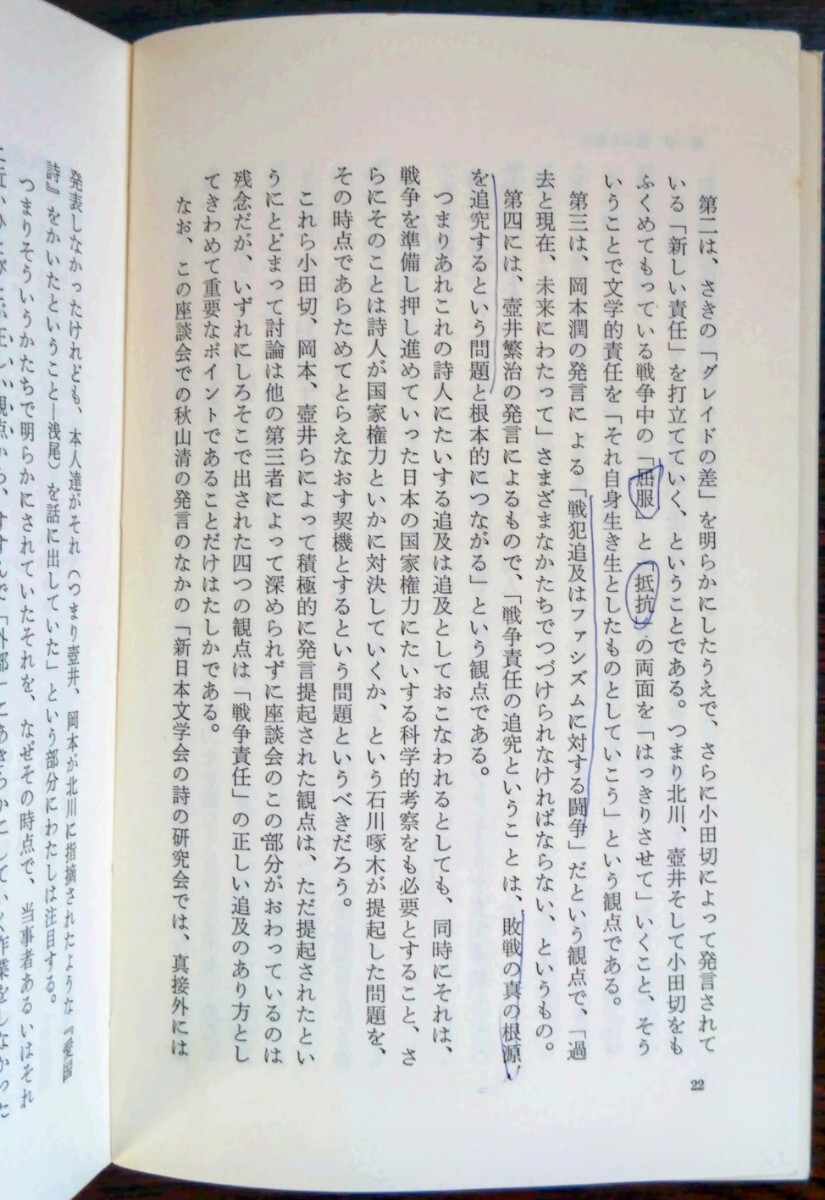 第二は、さきの「グレイドの差」を明らかにしたうえで、さらに小田切によって発言されて
いる「新しい責任」を打立てていく、ということである。つまり北川、壺井そして小田切をも
ふくめてもっている戦争中の「屈服」と「抵抗」の両面を「はっきりさせて」いくこと、そう
いうことで文学的責任を「それ自身生き生としたものとしていこう」という観点である。
第三は、岡本潤の発言による「戦犯追及はファシズムに対する闘争」だという観点で、「過
去と現在、未来にわたって」さまざまなかたちでつづけられなければならない、というもの。
第四には、壺井繁治の発言によるもので、「戦争責任の追究ということは、敗戦の真の根源
を追究するという問題と根本的につながる」という観点である。
つまりあれこれの詩人にたいする追及は追及としておこなわれるとしても、同時にそれは、
戦争を準備し押し進めていった日本の国家権力にたいする科学的考察をも必要とすること、さ
らにそのことは詩人が国家権力といかに対決していくか、という石川啄木が提起した問題を、
その時点であらためてとらえなおす契機とするという問題というべきだろう。
これら小田切、岡本、壺井らによって積極的に発言提起された観点は、ただ提起されたとい
うにとどまって討論は他の第三者によって深められずに座談会のこの部分がおわっているのは
残念だが、いずれにしろそこで出された四つの観点は「戦争責任」の正しい追及のあり方とし
てきわめて重要なポイントであることだけはたしかである。
なお、この座談会での秋山清の発言のなかの「新日本文学会の詩の研究会では、真接外には
22
発表しなかったけれども、本人達がそれ（つまり壺井、岡本が北川に指摘されたような『愛国
詩』をかいたということ―浅尾）を話に出していた」という部分にわたしは注目する。
つまりそういうかたちで明らかにされていたそれを、なぜその時点で、当事者あるいはそれ